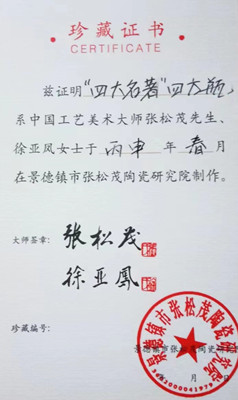 珍藏证书
CERTIFICATE
兹证明“四大名著”四大瓶,
系中国工艺美术大师张松茂先生、
徐亚凤女士于丙申年春月
在景德镇市张松茂陶瓷研究院制作。
大师签章：张松茂
徐亚鳳
珍藏编号：
景德镇市张松茂陶瓷研究院
月
景德镇市张松茂陶瓷研究院